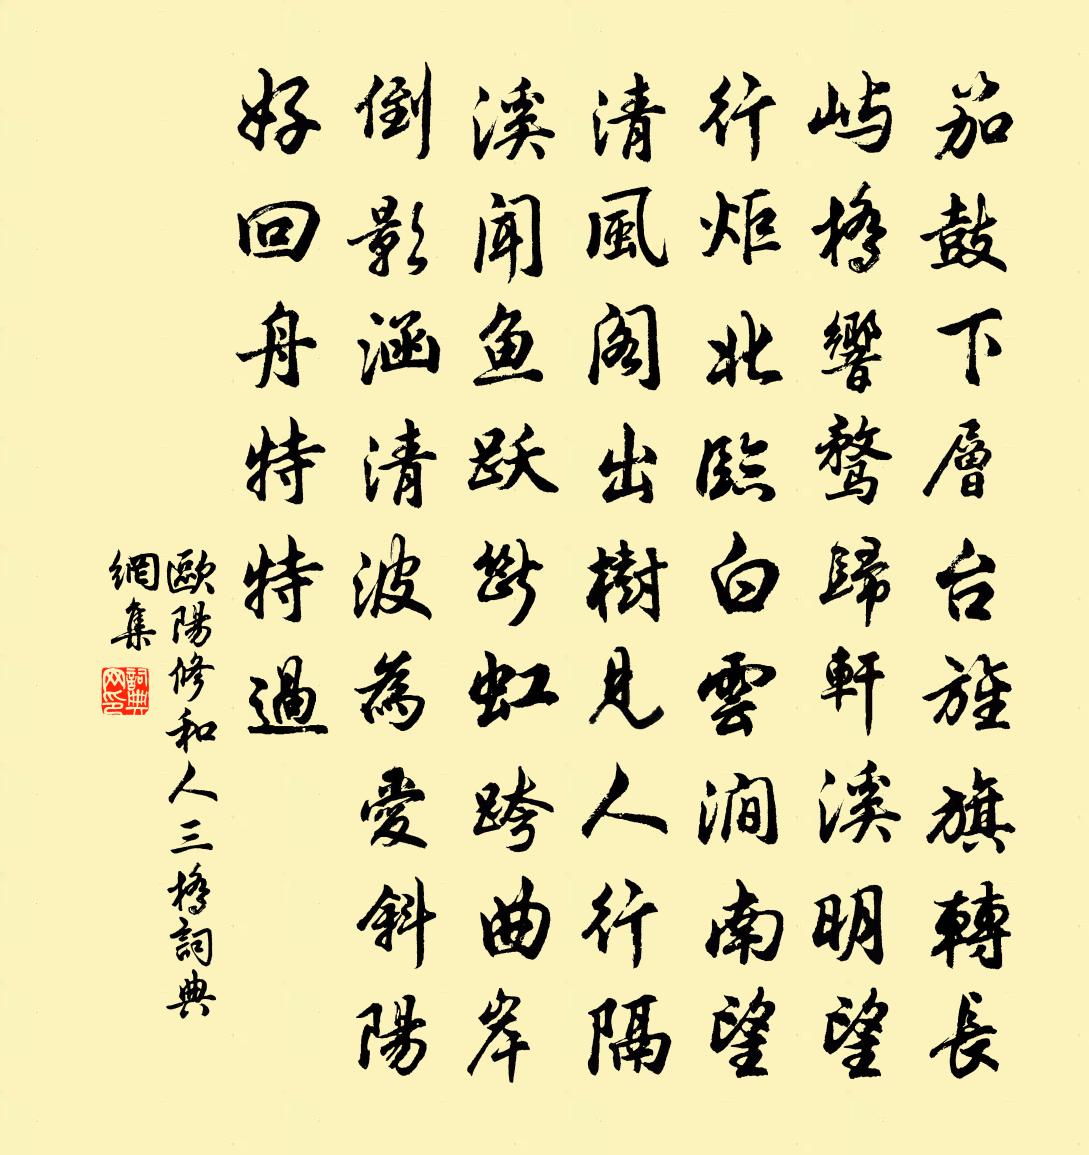 笳鼓下層台旌旗轉長
屿橋響騖歸軒溪明望
行炬北臨白雲澗南望
清風閣出樹見人行隔
溪聞鱼跃斷虹跨曲岸
倒影涵清波為愛斜陽
好回舟特特過
歐陽修和人三橋詞典
網集
詞典网印